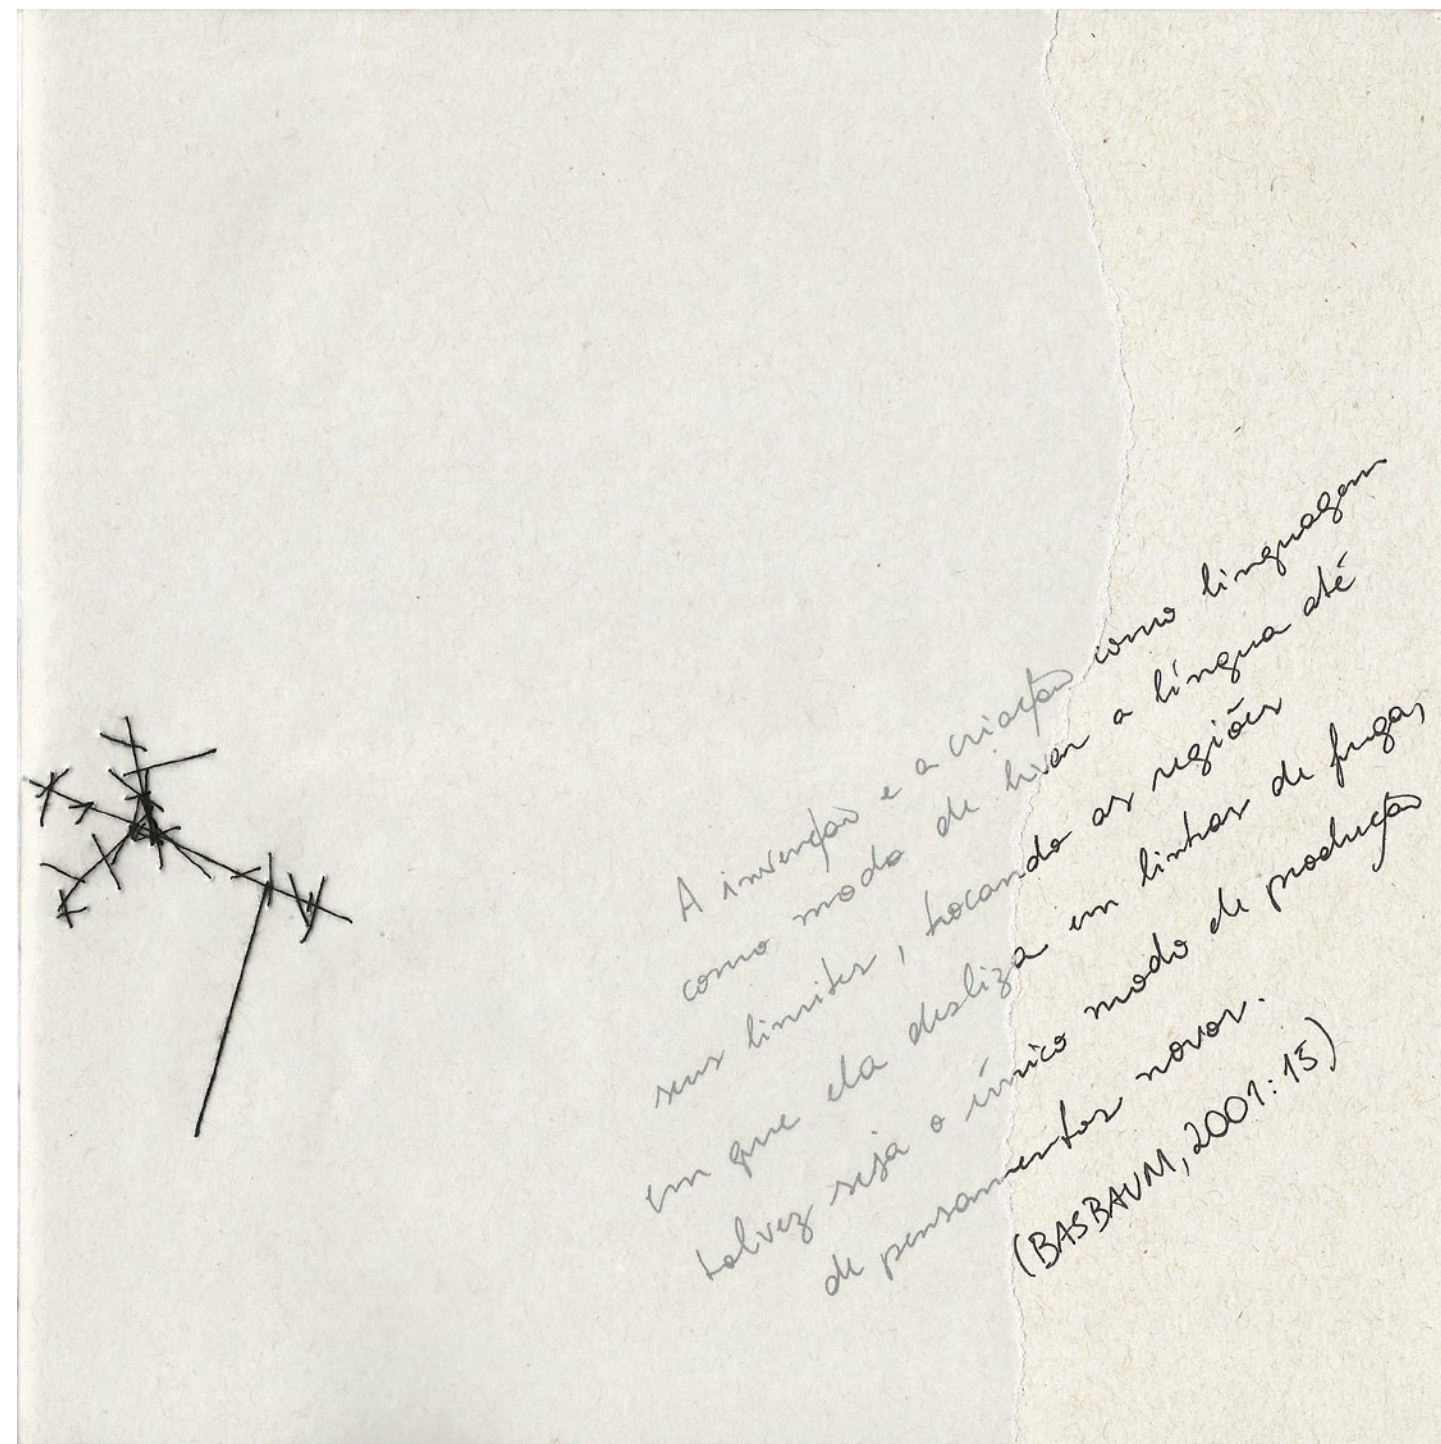 A invenção e a criação como linguagem
como modo de levar a língua até
seus limites, tocando as regiões
em que ela desliza em linhas de fuga,
talvez seja o único modo de produção
de pensamentos novos.
(BASBAUM, 2001:15)